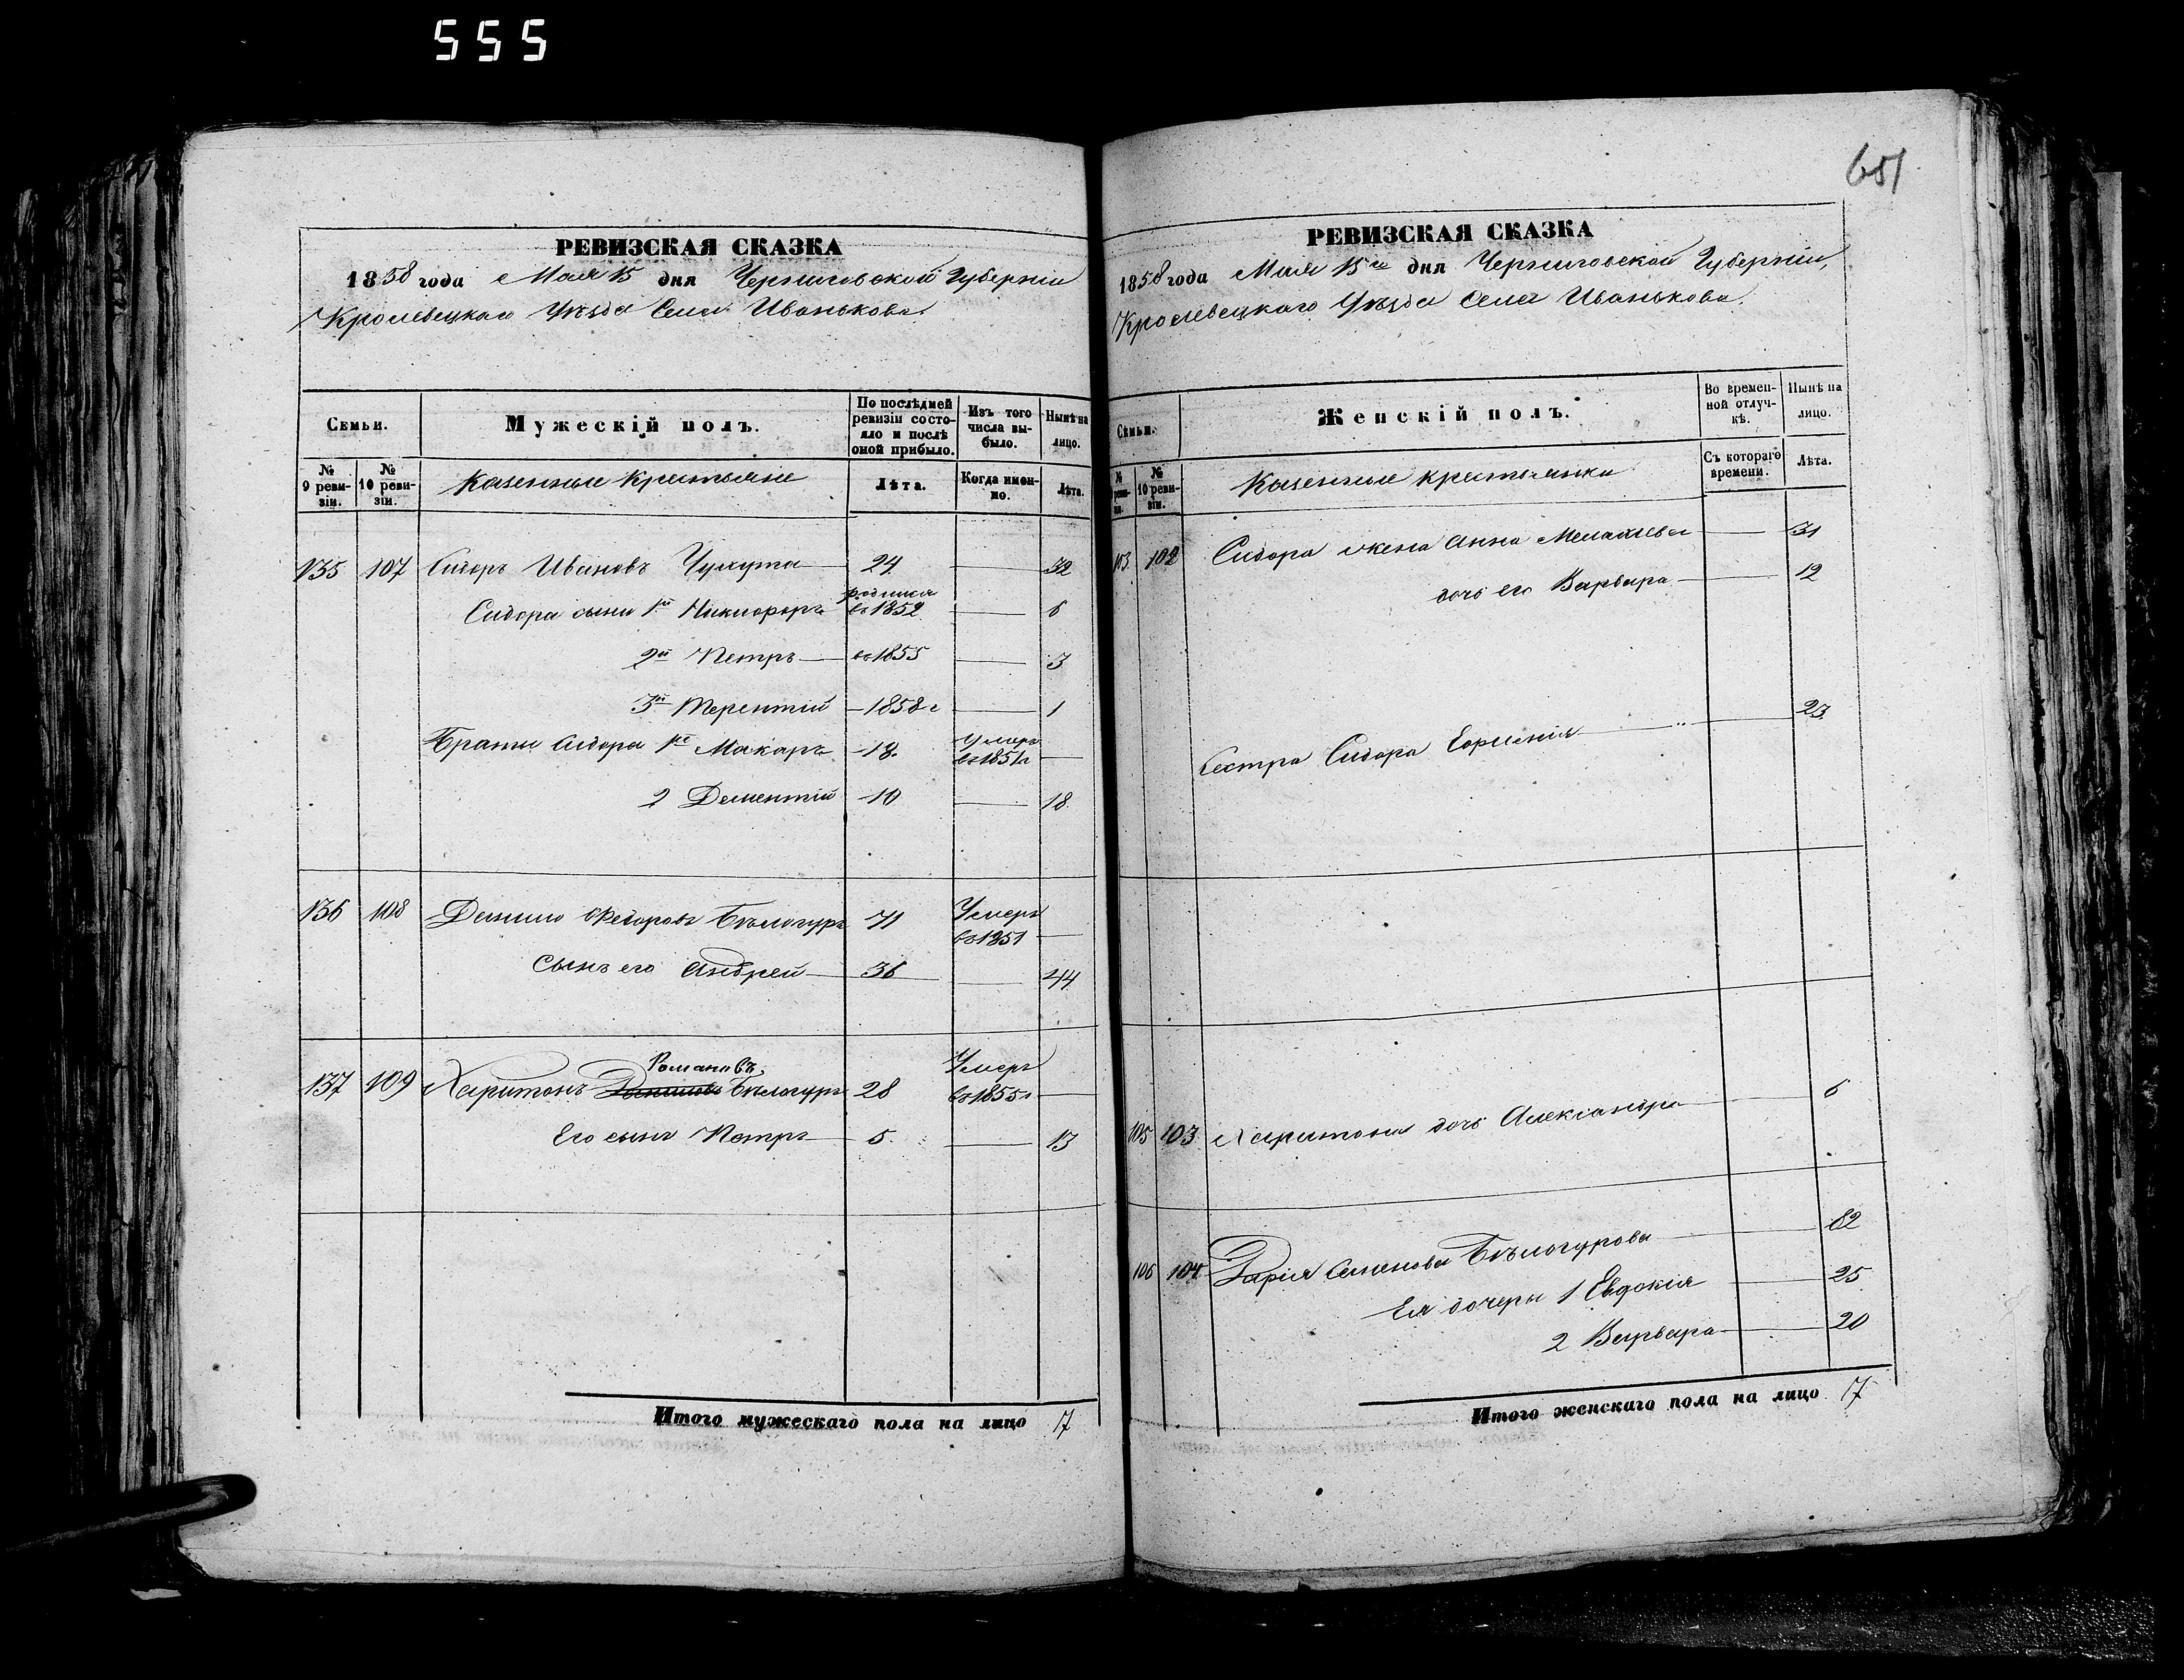 555
651
РЕВИЗСКАЯ СКАЗКА
1858 года Мая 15 дня Черниговской Губерніи
Кролевецкаго Уѣзда Села Иванькова.
Семьи.
Мужескій полъ.
По послѣдней ревизіи состояло и послѣ оной прибыло.
Изъ того числа выбыло.
Нынѣ на лицо.
№ 9 ревизіи.
№ 10 ревизіи.
Казенные Крестьяне
Лѣта.
Когда именно.
Лѣта.
135 107 Сидоръ Ивановъ 24 — 32
Сидора сыны 1й Никифоръ родился въ 1852 — 6
2й Петръ — въ 1855 — 3
3й Терентій — 1858 г — 1
Браты Сидора 1й Макаръ 18 Умеръ въ 1851 г —
2 Дементій 10 — 18
136 108 Данило Федоровъ Бѣлогуръ 71 Умеръ въ 1851 —
Сынъ его Андрей — 36 — 44
Романовъ
137 109 Харитонъ Даниловъ Бѣлогуръ 28 Умеръ въ 1855 г —
Его сынъ Петръ — 5 — 13
Итого мужескаго пола на лицо 17
РЕВИЗСКАЯ СКАЗКА
1858 года Мая 15го дня Черниговской Губерніи,
Кролевецкаго Уѣзда Села Иванькова.
Семьи.
Женскій полъ.
Во временной отлучкѣ.
Нынѣ на лицо.
№ 10 ревизіи.
Казенные крестьянки
Съ котораго времени.
Лѣта.
103 102 Сидора жена Анна — 31
дочь его Варвара — 12
Сестра Сидора Ефимія — 23
105 103 Харитона дочь Александра — 6
106 104 Дарія Семенова Бѣлогурова — 62
Ея дочеры 1 Евдокія — 25
2 Варвара — 20
Итого женскаго пола на лицо 17